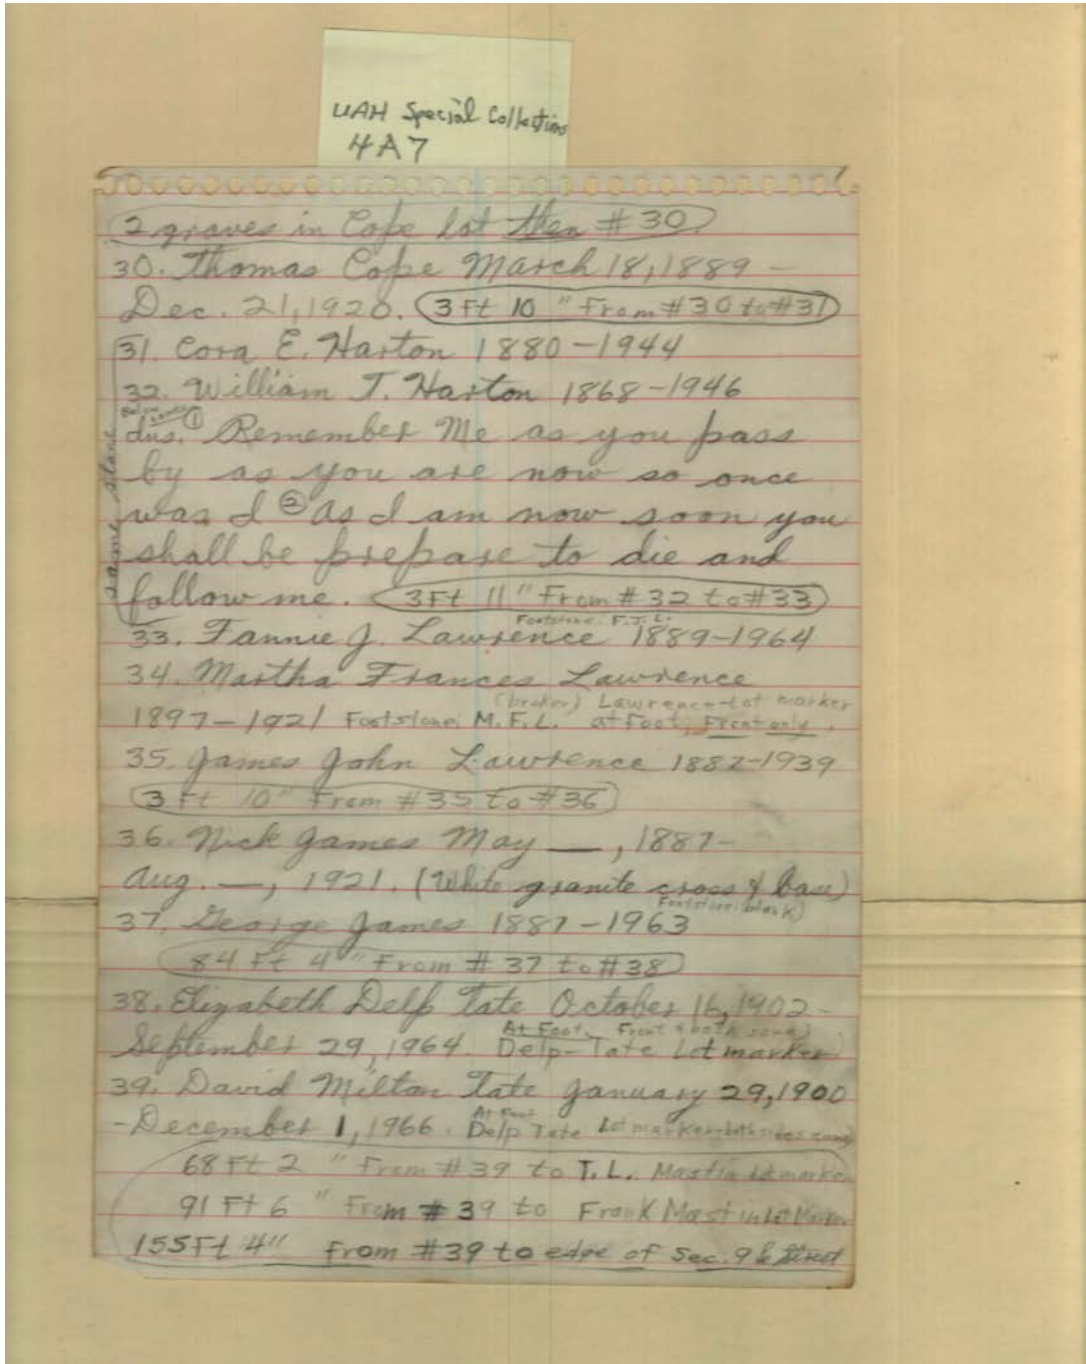 UAH Special Collections
4A7
2 graves in Cope lot then #30
30. Thomas Cope March 18, 1889 -
Dec. 21, 1920. 3 Ft 10 " From #30 to #31
31. Cora E. Harton 1880-1944
32. William T. Harton 1868-1946
Ins. ① Remember Me as you pass
by as you are now so once
was I ② As I am now soon you
shall be prepare to die and
follow me. 3 Ft 11 " From #32 to #33
same stone
Footstone: F.J.L.
33. Fannie J. Lawrence 1889-1964
34. Martha Frances Lawrence
(broken) Lawrence-lot marker
1897-1921 Footstone: M.F.L. at Foot, Front only.
35. James John Lawrence 1882-1939
3 Ft 10" From #35 to #36
36. Nick James May —, 1887-
Aug. —, 1921. (White granite cross & base)
Footstone: blank)
37. George James 1887-1963
84 Ft 4" From #37 to #38
38. Elizabeth Delp Tate October 16, 1902-
At Foot, Front & both same)
September 29, 1964. Delp-Tate Lot marker
39. David Milton Tate January 29, 1900
At Foot
-December 1, 1966. Delp Tate Lot marker both sides same
68 Ft 2 " From #39 to T.L. Mastin Lot marker
91 Ft 6 " From #39 to Frank Mastin Lot Marker
155 Ft 4" From #39 to edge of Sec. 9 & Street